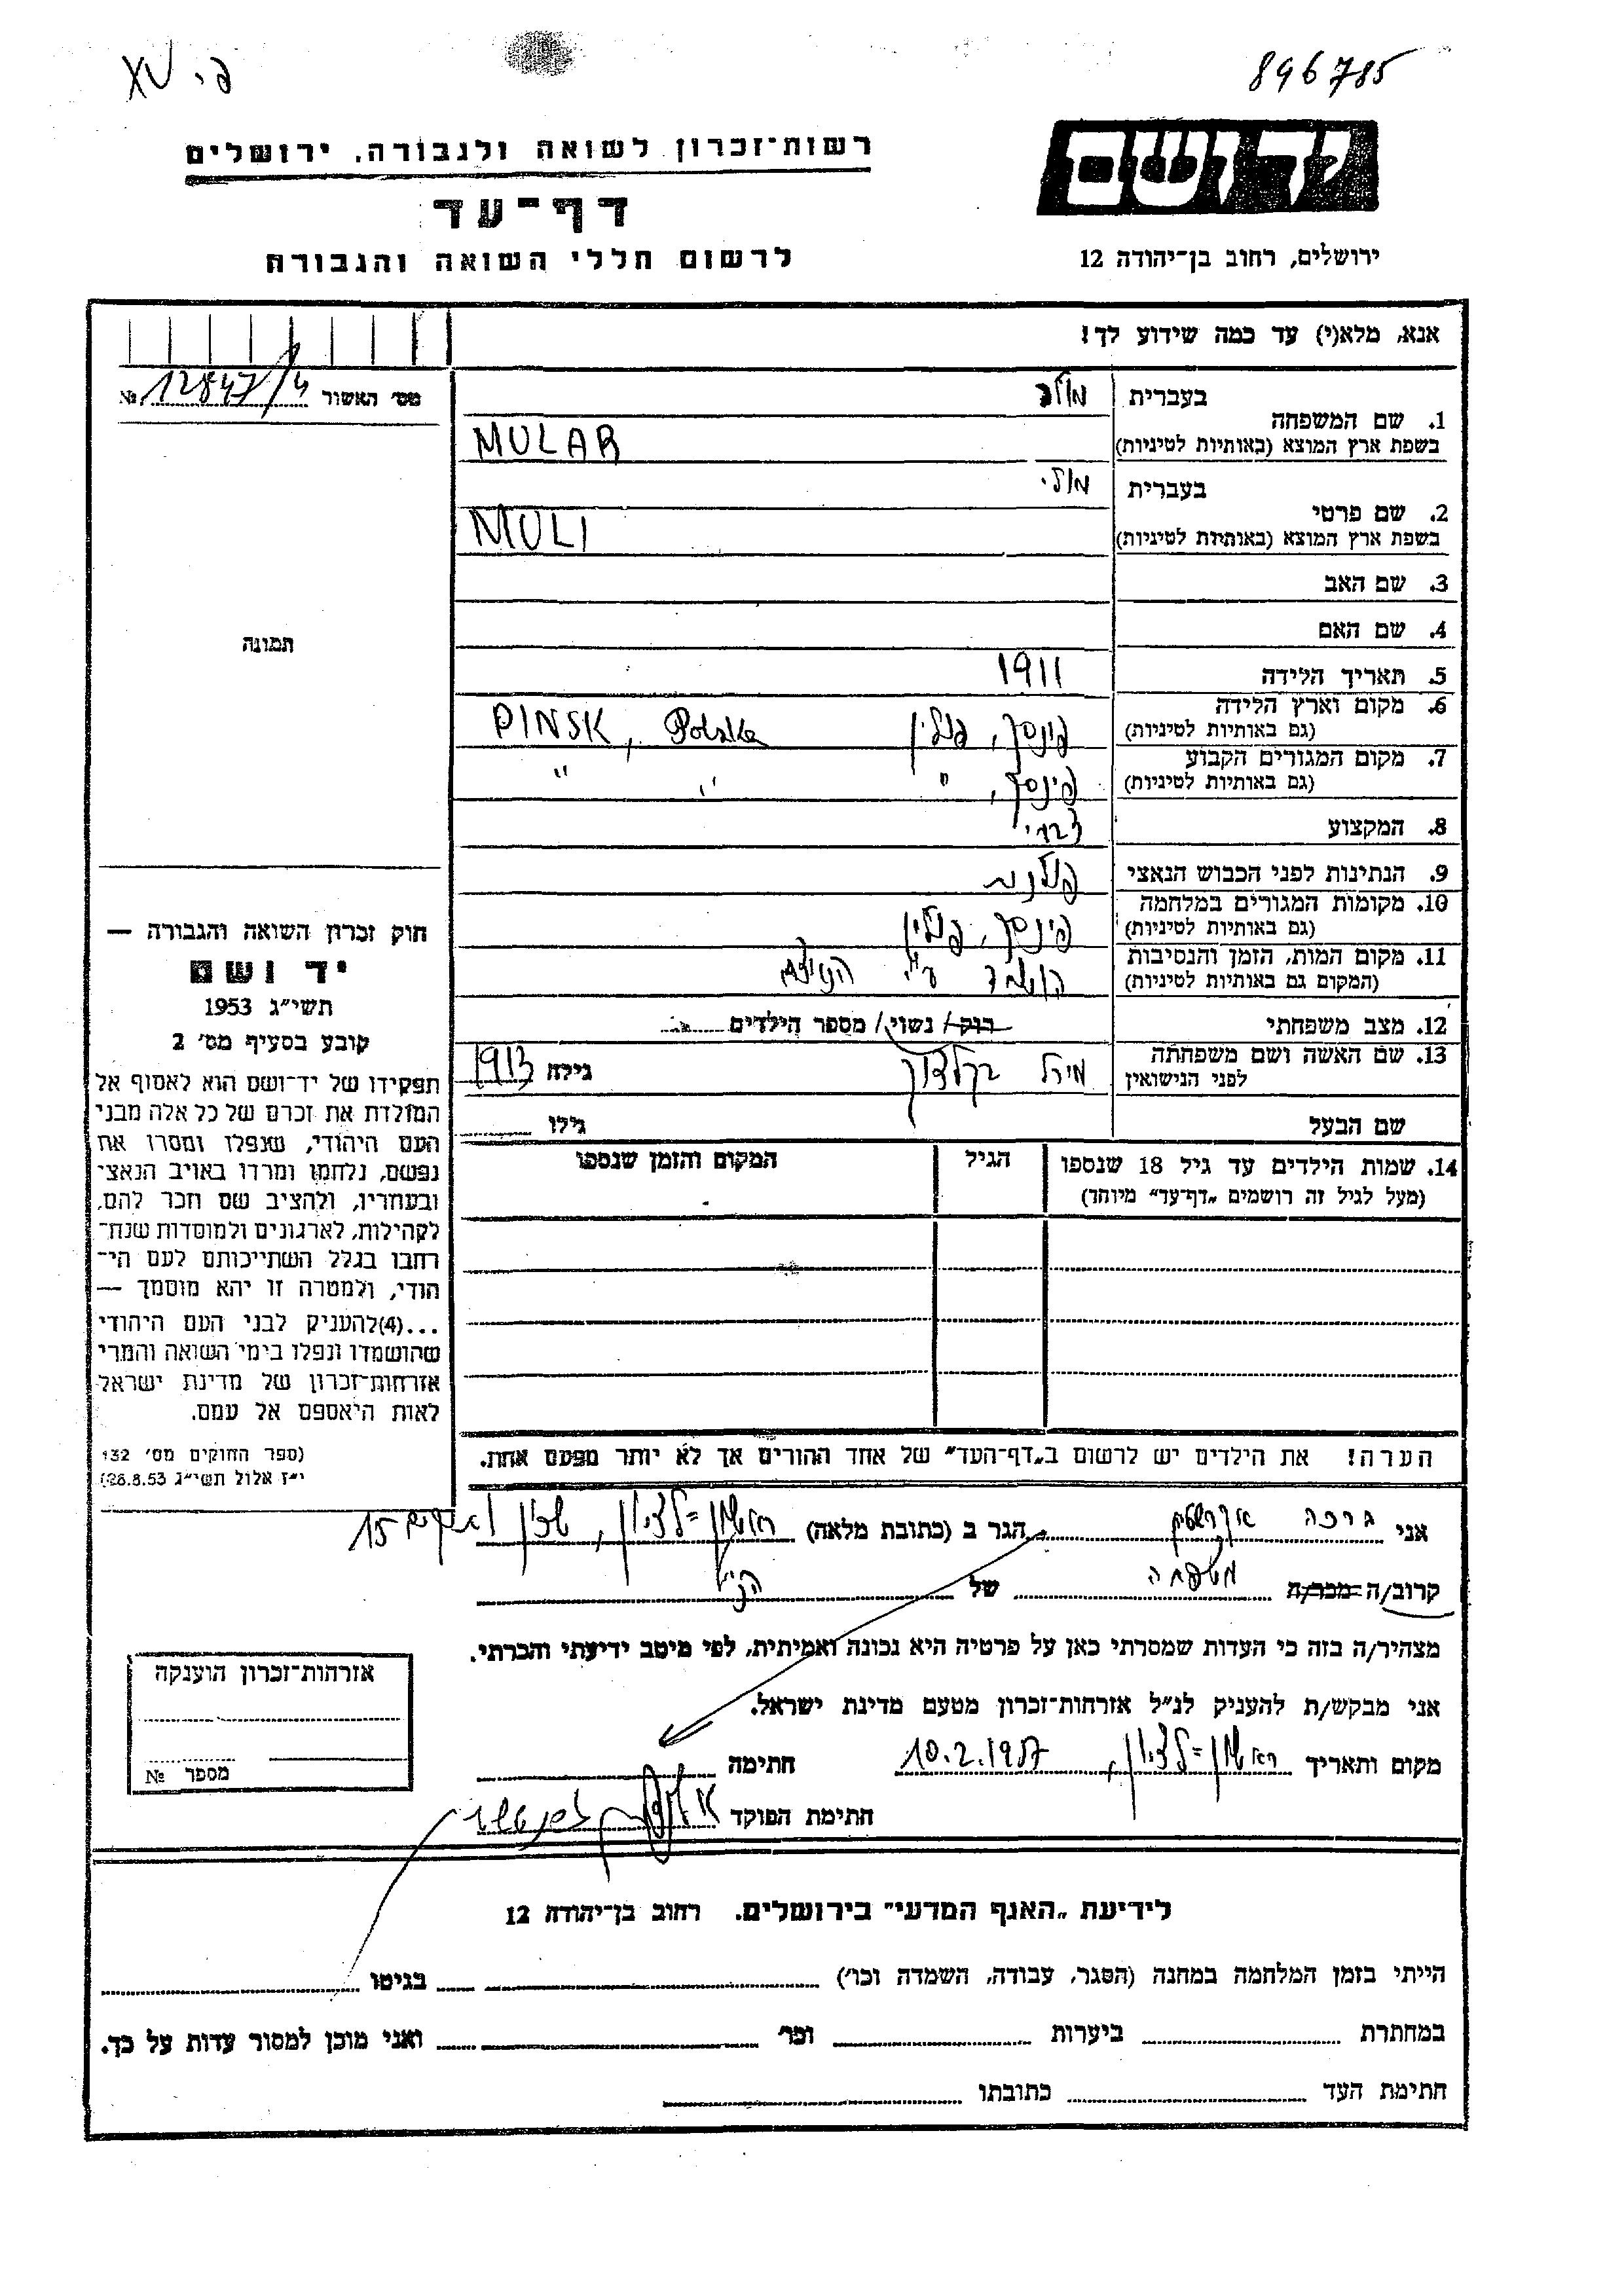 896785
רשות־זכרון לשואה ולגבורה. ירושלים
דף־עד
לרשום חללי השואה והגבורה
יד ושם
ירושלים, רחוב בן־יהודה 12
אנא, מלא(י) עד כמה שידוע לך!
מס׳ האשור № 12847/4
תמונה
בעברית מולר
1. שם המשפחה
בשפת ארץ המוצא (באותיות לטיניות) MULAR
בעברית מולי
2. שם פרטי
בשפת ארץ המוצא (באותיות לטיניות) MULI
3. שם האב
4. שם האם
5. תאריך הלידה 1911
6. מקום וארץ הלידה
(גם באותיות לטיניות) פינסק, פולין PINSK, Polska
7. מקום המגורים הקבוע
(גם באותיות לטיניות) פינסק, " " "
8. המקצוע
9. הנתינות לפני הכבוש הנאצי פולנית
10. מקומות המגורים במלחמה
(גם באותיות לטיניות) פינסק, פולין
11. מקום המות, הזמן והנסיבות
(המקום גם באותיות לטיניות) הושמד ע"י הנאצים
12. מצב משפחתי רוק / נשוי / מספר הילדים
13. שם האשה ושם משפחתה
לפני הנישואין גילה 1913
שם הבעל גילו
14. שמות הילדים עד גיל 18 שנספו הגיל המקום והזמן שנספו
(מעל לגיל זה רושמים „דף־עד״ מיוחד)
חוק זכרון השואה והגבורה —
יד ושם
תשי״ג 1953
קובע בסעיף מס׳ 2
תפקידו של יד־ושם הוא לאסוף אל
המולדת את זכרם של כל אלה מבני
העם היהודי, שנפלו ומסרו את
נפשם, נלחמו ומרדו באויב הנאצי
ובעוזריו, ולהציב שם וזכר להם,
לקהילות, לארגונים ולמוסדות שנח־
רבו בגלל השתייכותם לעם הי־
הודי, ולמטרה זו יהא מוסמך —
...(4) להעניק לבני העם היהודי
שהושמדו ונפלו בימי השואה והמרי
אזרחות־זכרון של מדינת ישראל
לאות היאספם אל עמם.
(ספר החוקים מס׳ 132
י״ז אלול תשי״ג 28.8.53)
הערה! את הילדים יש לרשום ב„דף־העד״ של אחד ההורים אך לא יותר מפעם אחת.
אני הגר ב (כתובת מלאה) ראשון-לציון, שכון 15
קרוב/ה מכר/ה משפחה של הנ"ל
מצהיר/ה בזה כי העדות שמסרתי כאן על פרטיה היא נכונה ואמיתית, לפי מיטב ידיעתי והכרתי.
אני מבקש/ת להעניק לנ״ל אזרחות־זכרון מטעם מדינת ישראל.
מקום ותאריך ראשון-לציון, 10.2.1957 חתימה
חתימת הפוקד
אזרחות־זכרון הוענקה
מספר №
לידיעת „האגף המדעי״ בירושלים. רחוב בן־יהודה 12
הייתי בזמן המלחמה במחנה (הסגר, עבודה, השמדה וכו׳) בגיטו
במחתרת ביערות וכו׳ ואני מוכן למסור עדות על כך.
חתימת העד כתובתו